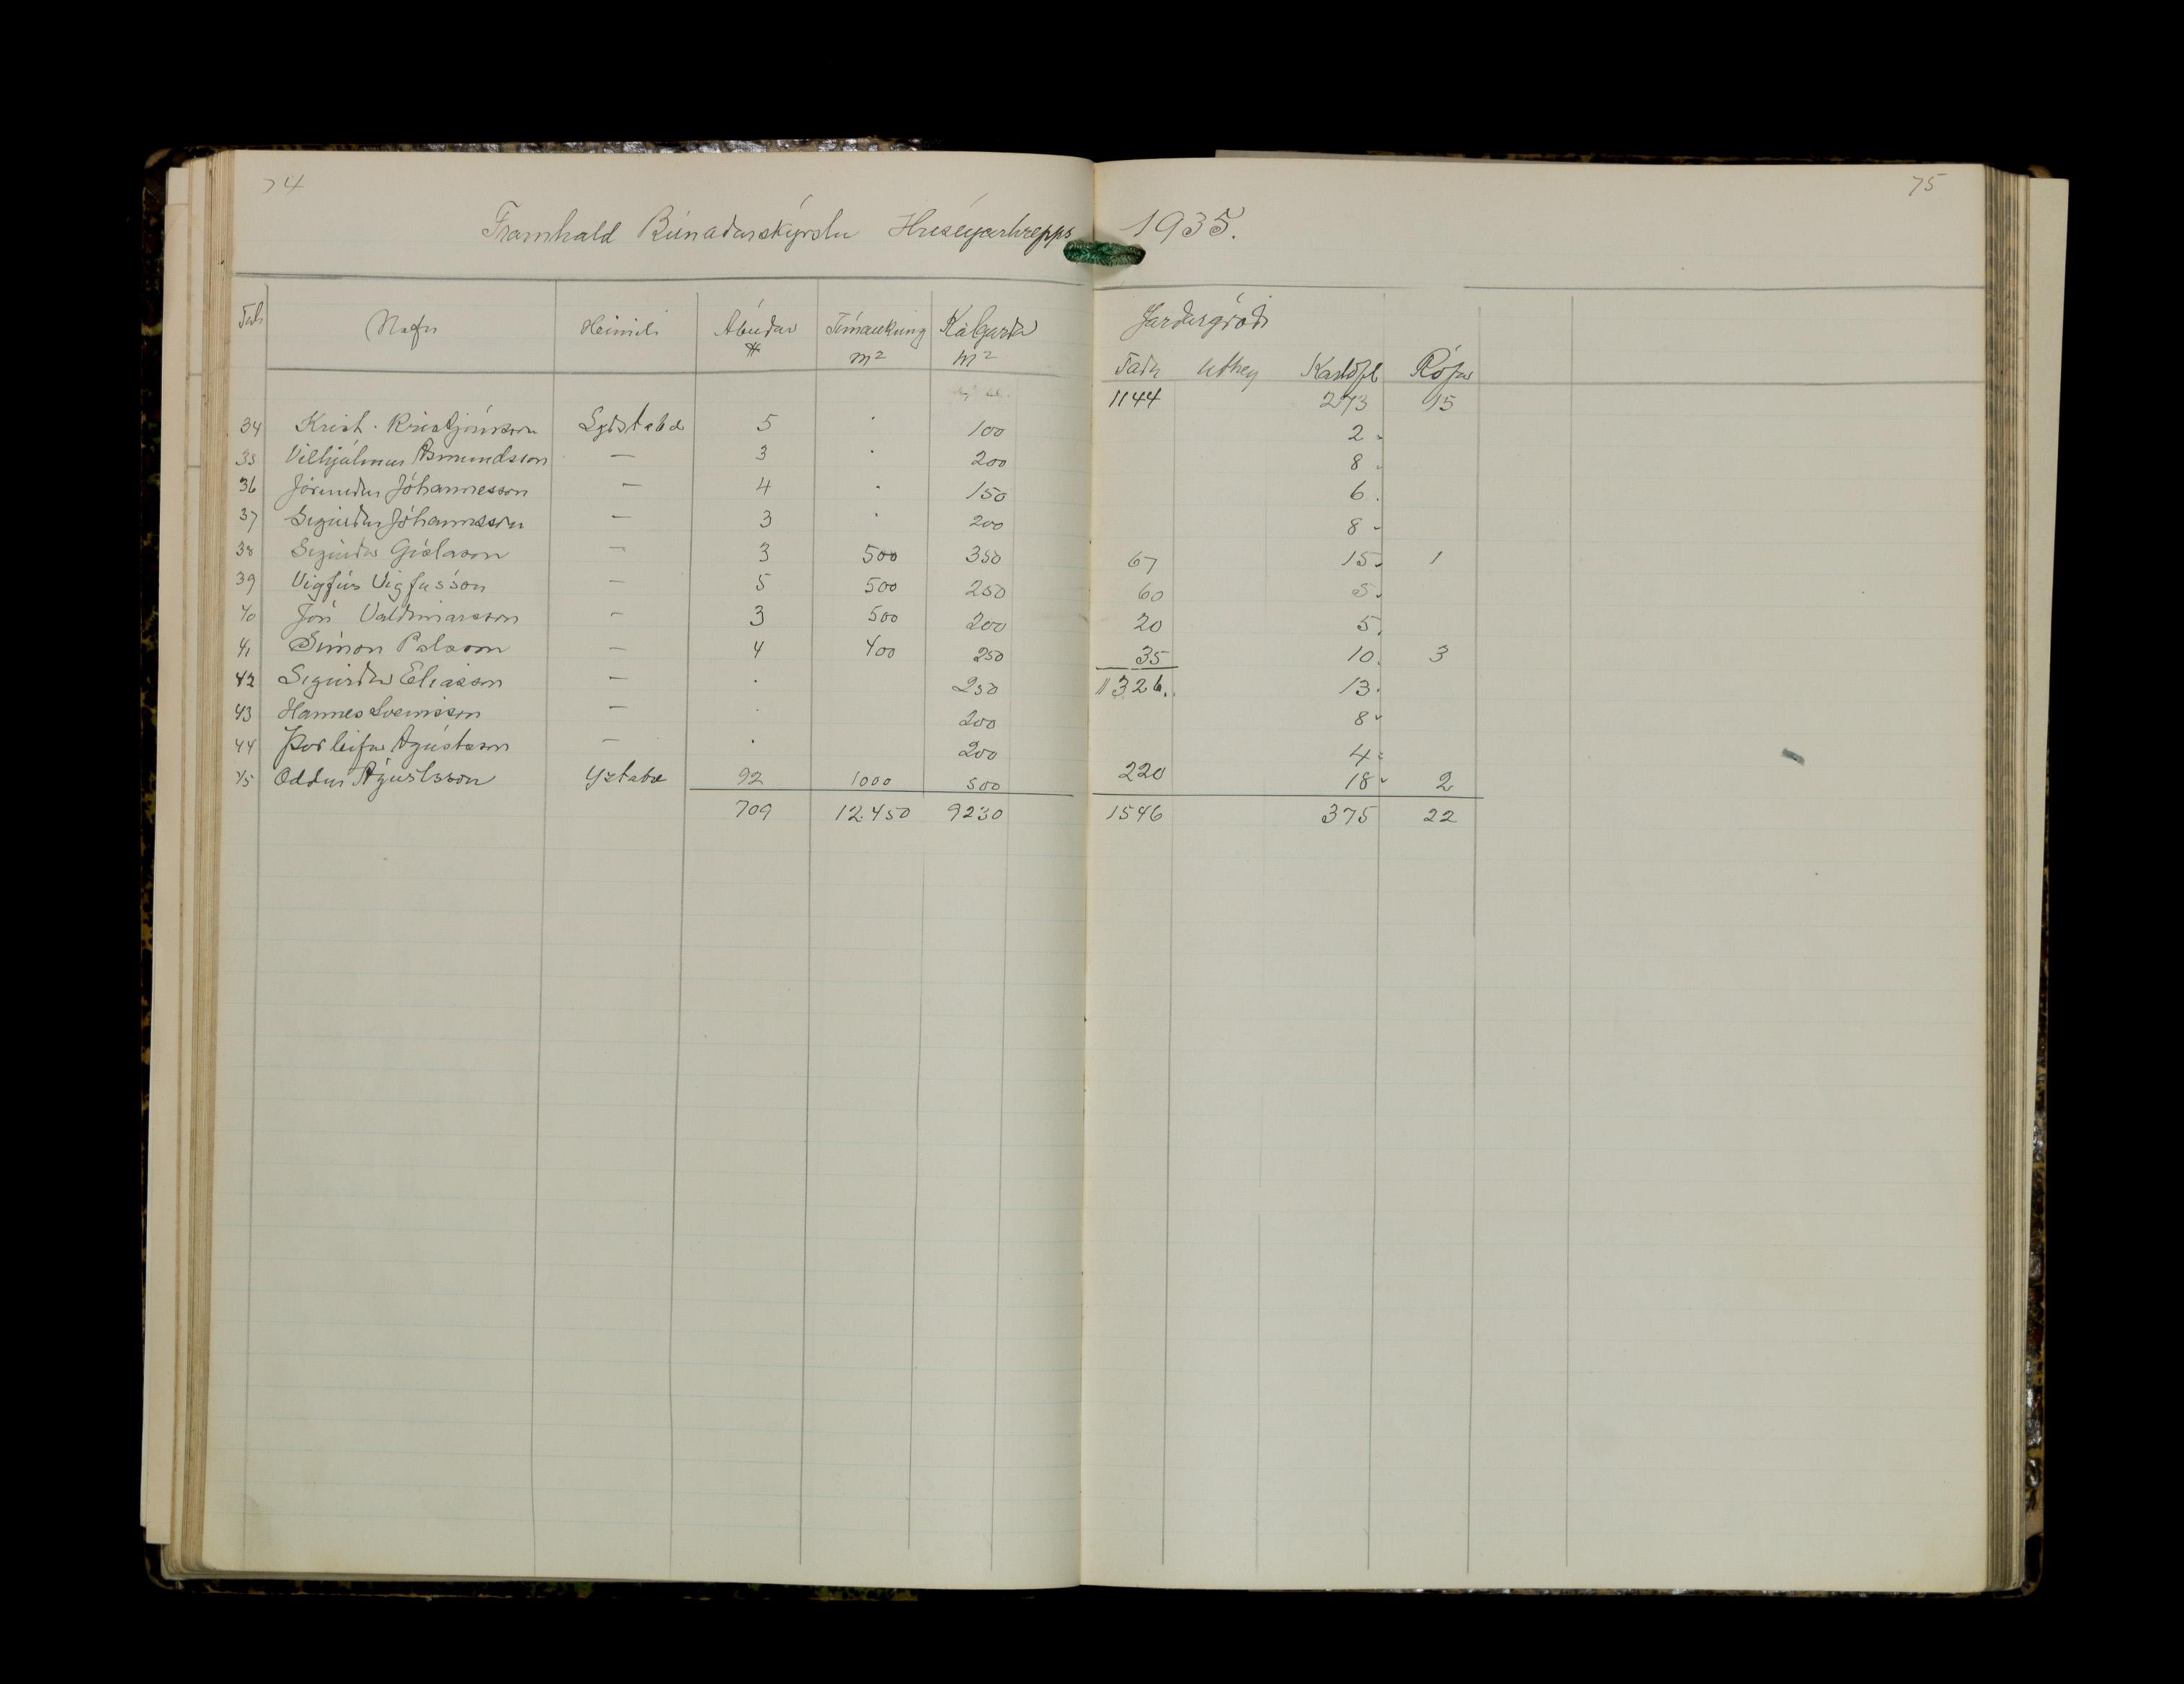 74
75
Framhald Búnaðarskýrslu Hríseyarhrepps 1935.
Tala Nafn Heimili Ábúðar Túnaukning Kálgarða Jarðargróði
# m² m² Taða Úthey Kartöfl Rófur
1144 273 15
34 Krist. Kristjánsson Sydstabæ 5 . 100 2
35 Vilhjálmur Ásmundsson — 3 . 200 8
36 Jörundur Jóhannesson — 4 . 150 6
37 Sigurður Jóhannsson — 3 . 200 8
38 Sigurður Gíslason — 3 500 350 67 15 1
39 Vigfús Vigfússon — 5 500 250 60 5
40 Jón Valdimarsson — 3 500 200 20 5
41 Símon Pálsson — 4 400 250 35 10 3
42 Sigurður Elíasson — . 250 1326 13
43 Hannes Sveinsson — . 200 8
44 Þorleifur Ágústsson — . 200 4
45 Oddur Ágústsson Yztabæ 92 1000 500 220 18 2
709 12.450 9230 1546 375 22